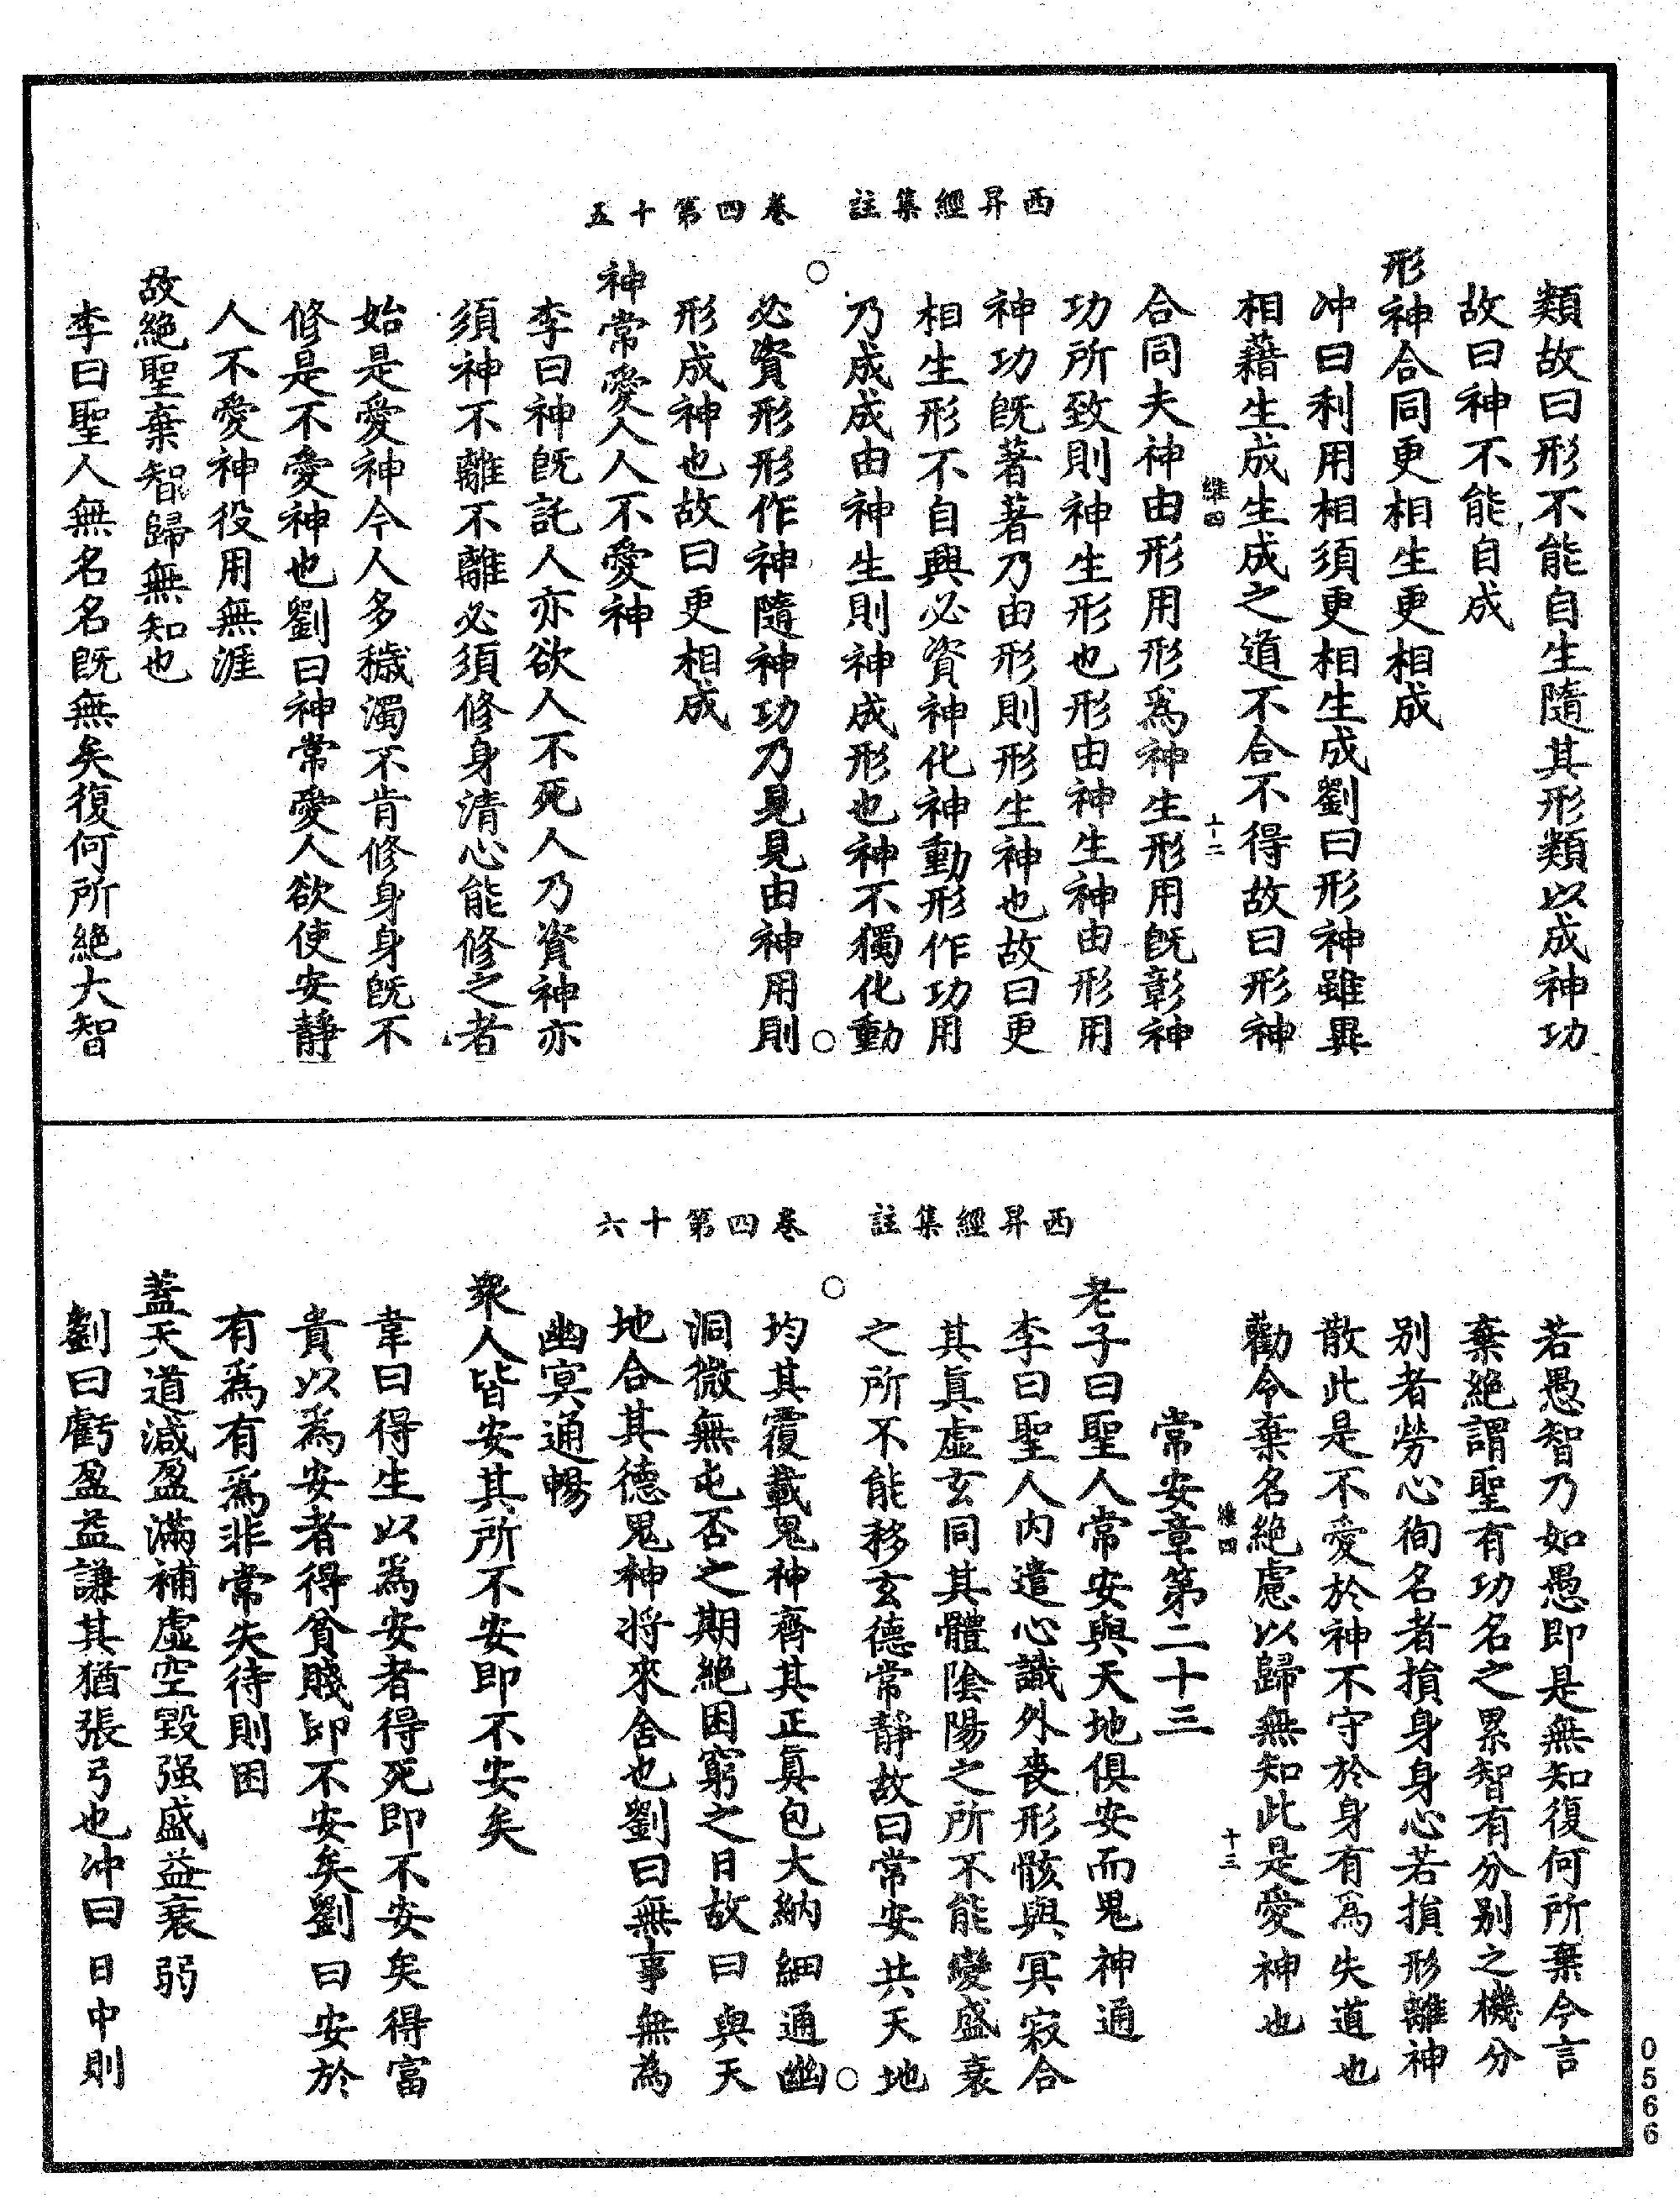 西昇經集註　卷四第十五
類故曰形不能自生隨其形類以成神功
故曰神不能自成
形神合同更相生更相成
冲曰利用相須更相生成劉曰形神雖異
相藉生成生成之道不合不得故曰形神
維四　十二
合同夫神由形用形爲神生形用旣彰神
功所致則神生形也形由神生神由形用
神功旣著著乃由形則形生神也故曰更
相生形不自興必資神化神動形作功用
乃成成由神生則神成形也神不獨化動
必資形形作神隨神功乃見見由神用則
形成神也故曰更相成
神常愛人人不愛神
李曰神旣託人亦欲人不死人乃資神亦
須神不離不離必須修身清心能修之者
始是愛神今人多穢濁不肯修身身旣不
修是不愛神也劉曰神常愛人欲使安靜
人不愛神役用無涯
故絕聖棄智歸無知也
李曰聖人無名名旣無矣復何所絕大智
西昇經集註　卷四第十六
若愚智乃如愚即是無知復何所棄今言
棄絕謂聖有功名之累智有分別之機分
別者勞心徇名者損身身心若損形離神
散此是不愛於神不守於身有爲失道也
勸令棄名絕慮以歸無知此是愛神也
維四　十三
常安章第二十三
老子曰聖人常安與天地俱安而鬼神通
李曰聖人內遣心識外喪形骸與冥寂合
其眞虛玄同其體陰陽之所不能變盛衰
之所不能移玄德常靜故曰常安共天地
均其覆載鬼神齊其正眞包大納細通幽
洞微無屯否之期絕困窮之日故曰與天
地合其德鬼神將來舍也劉曰無事無為
幽冥通暢
衆人皆安其所不安即不安矣
韋曰得生以為安者得死即不安矣得富
貴以爲安者得貧賤即不安矣劉曰安於
有爲有爲非常失待則困
蓋天道減盈滿補虛空毀强盛益衰弱
劉曰虧盈益謙其猶張弓也冲曰日中則
0566